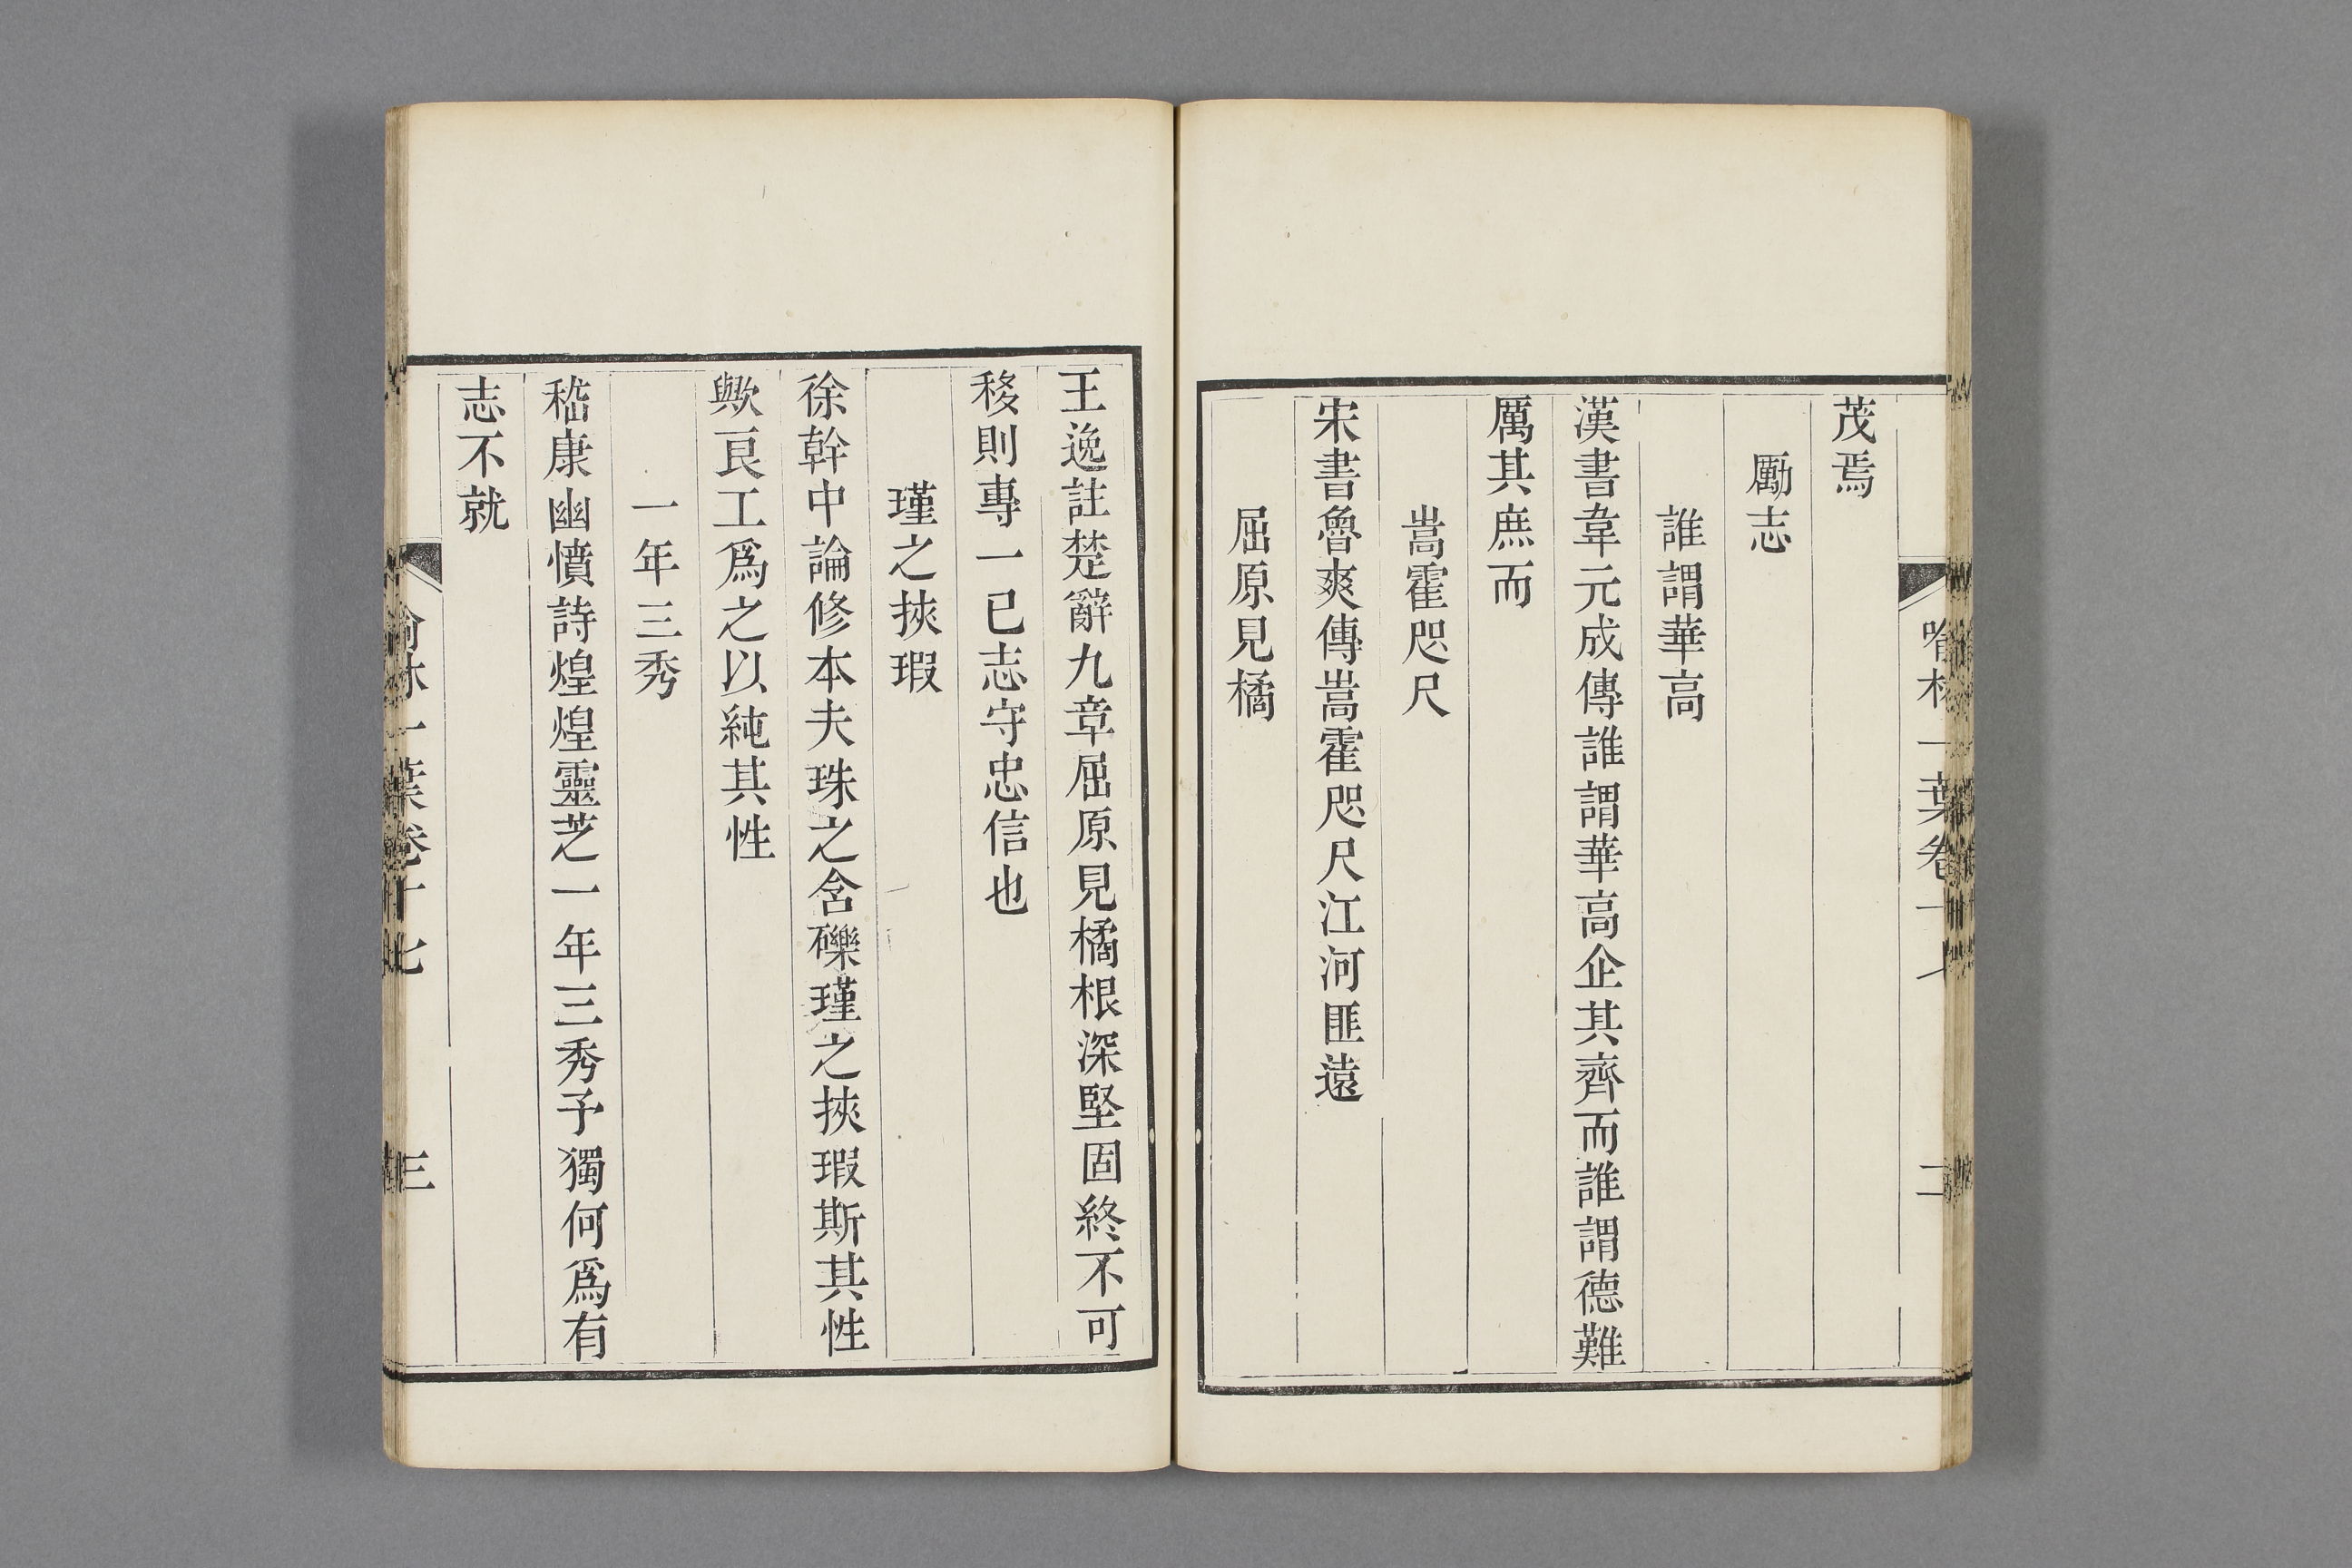 茂焉
勵志
誰謂華高
漢書韋元成傳誰謂華高企其齊而誰謂德難
厲其庶而
嵩霍咫尺
宋書魯爽傳嵩霍咫尺江河匪遠
屈原見橘
王逸註楚辭九章屈原見橘根深堅固終不可
移則專一己志守忠信也
瑾之挾瑕
徐幹中論修本夫珠之含礫瑾之挾瑕斯其性
歟良工爲之以純其性
一年三秀
嵇康幽憤詩煌煌靈芝一年三秀予獨何爲有
志不就
喻林一葉卷十七
三